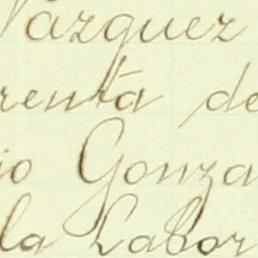 Vazquez
renta de
io Gonza
la Labor